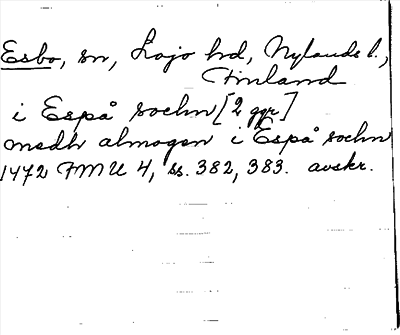 Esbo, sn, Lojo hd, Nylands l.,
Finland
i Espå sochn [2 ggr]
medh almogen i Espå sochn
1472 FMU 4, ss. 382, 383. avskr.